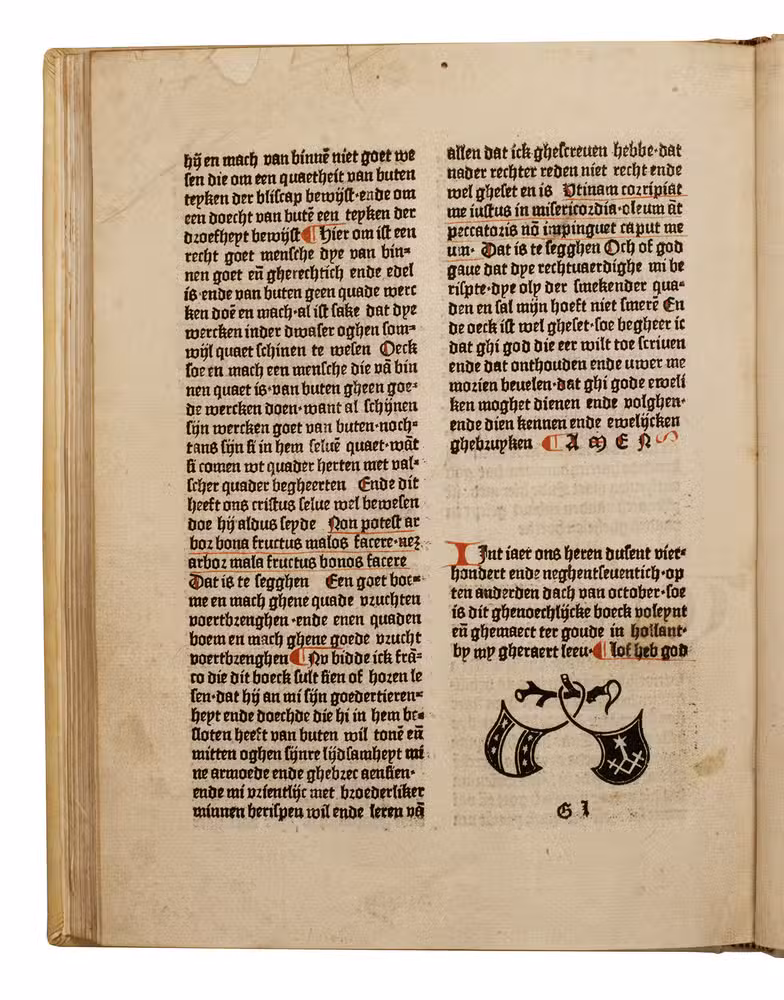 hij en mach van binnē niet goet we
sen die om een quaetheit van buten
teyken der bliscap bewijst·ende om
een doecht van butē een teyken der
droefheyt bewijst¶ Hier om ist een
recht goet mensche dye van bin⸗
nen goet eñ gherechtich ende edel
is·ende van buten geen quade werc
ken doē en mach·al ist sake dat dye
wercken inder dwaser oghen som⸗
wijl quaet schinen te wesen Oeck
soe en mach een mensche die vā bin
nen quaet is·van buten gheen goe⸗
de wercken doen·want al schijnen
sijn wercken goet van buten·noch⸗
tans sijn si in hem seluē quaet·wāt
si comen wt quader herten met val⸗
scher quader begheerten Ende dit
heeft ons cristus selue wel bewesen
doe hij aldus seyde Non potest ar
bor bona fructus malos facere·nez
arbor mala fructus bonos facere
Dat is te segghen Een goet boe⸗
me en mach ghene quade vruchten
voertbrenghen·ende enen quaden
boem en mach ghene goede vrucht
voertbrenghen¶ Nv bidde ick frā⸗
co die dit boeck sult sien of horen le
sen·dat hij an mi sijn goedertieren⸗
heyt ende doechde die hi in hem be⸗
sloten heeft van buten wil tonē eñ
mitten oghen sijnre lijdsamheyt mi
ne armoede ende ghebrec aensien·
ende mi vrientlijc met broederliker
minnen berispen wil ende leren vā
allen dat ick ghescreuen hebbe·dat
nader rechter reden niet recht ende
wel gheset en is Utinam corripiat
me iustus in misericordia·oleum āt
peccatoris nō impinguet caput me
um· Dat is te segghen Och of god
gaue dat dye rechtuaerdighe mi be
rispte·dye oly der smekender qua⸗
den en sal mijn hoeft niet smerē En
de oeck ist wel gheset·soe begheer ic
dat ghi god die eer wilt toe scriuen
ende dat onthouden ende uwer me
morien beuelen·dat ghi gode eweli
ken moghet dienen ende volghen·
ende dien kennen ende ewelijcken
ghebruyken ¶ A M E N
Int iaer ons heren dusent vier⸗
hondert ende neghentseuentich·op
ten anderden dach van october·soe
is dit ghenoechlijcke boeck voleynt
eñ ghemaect ter goude in hollant·
by my gheraert leeu·¶ lof heb god
G l